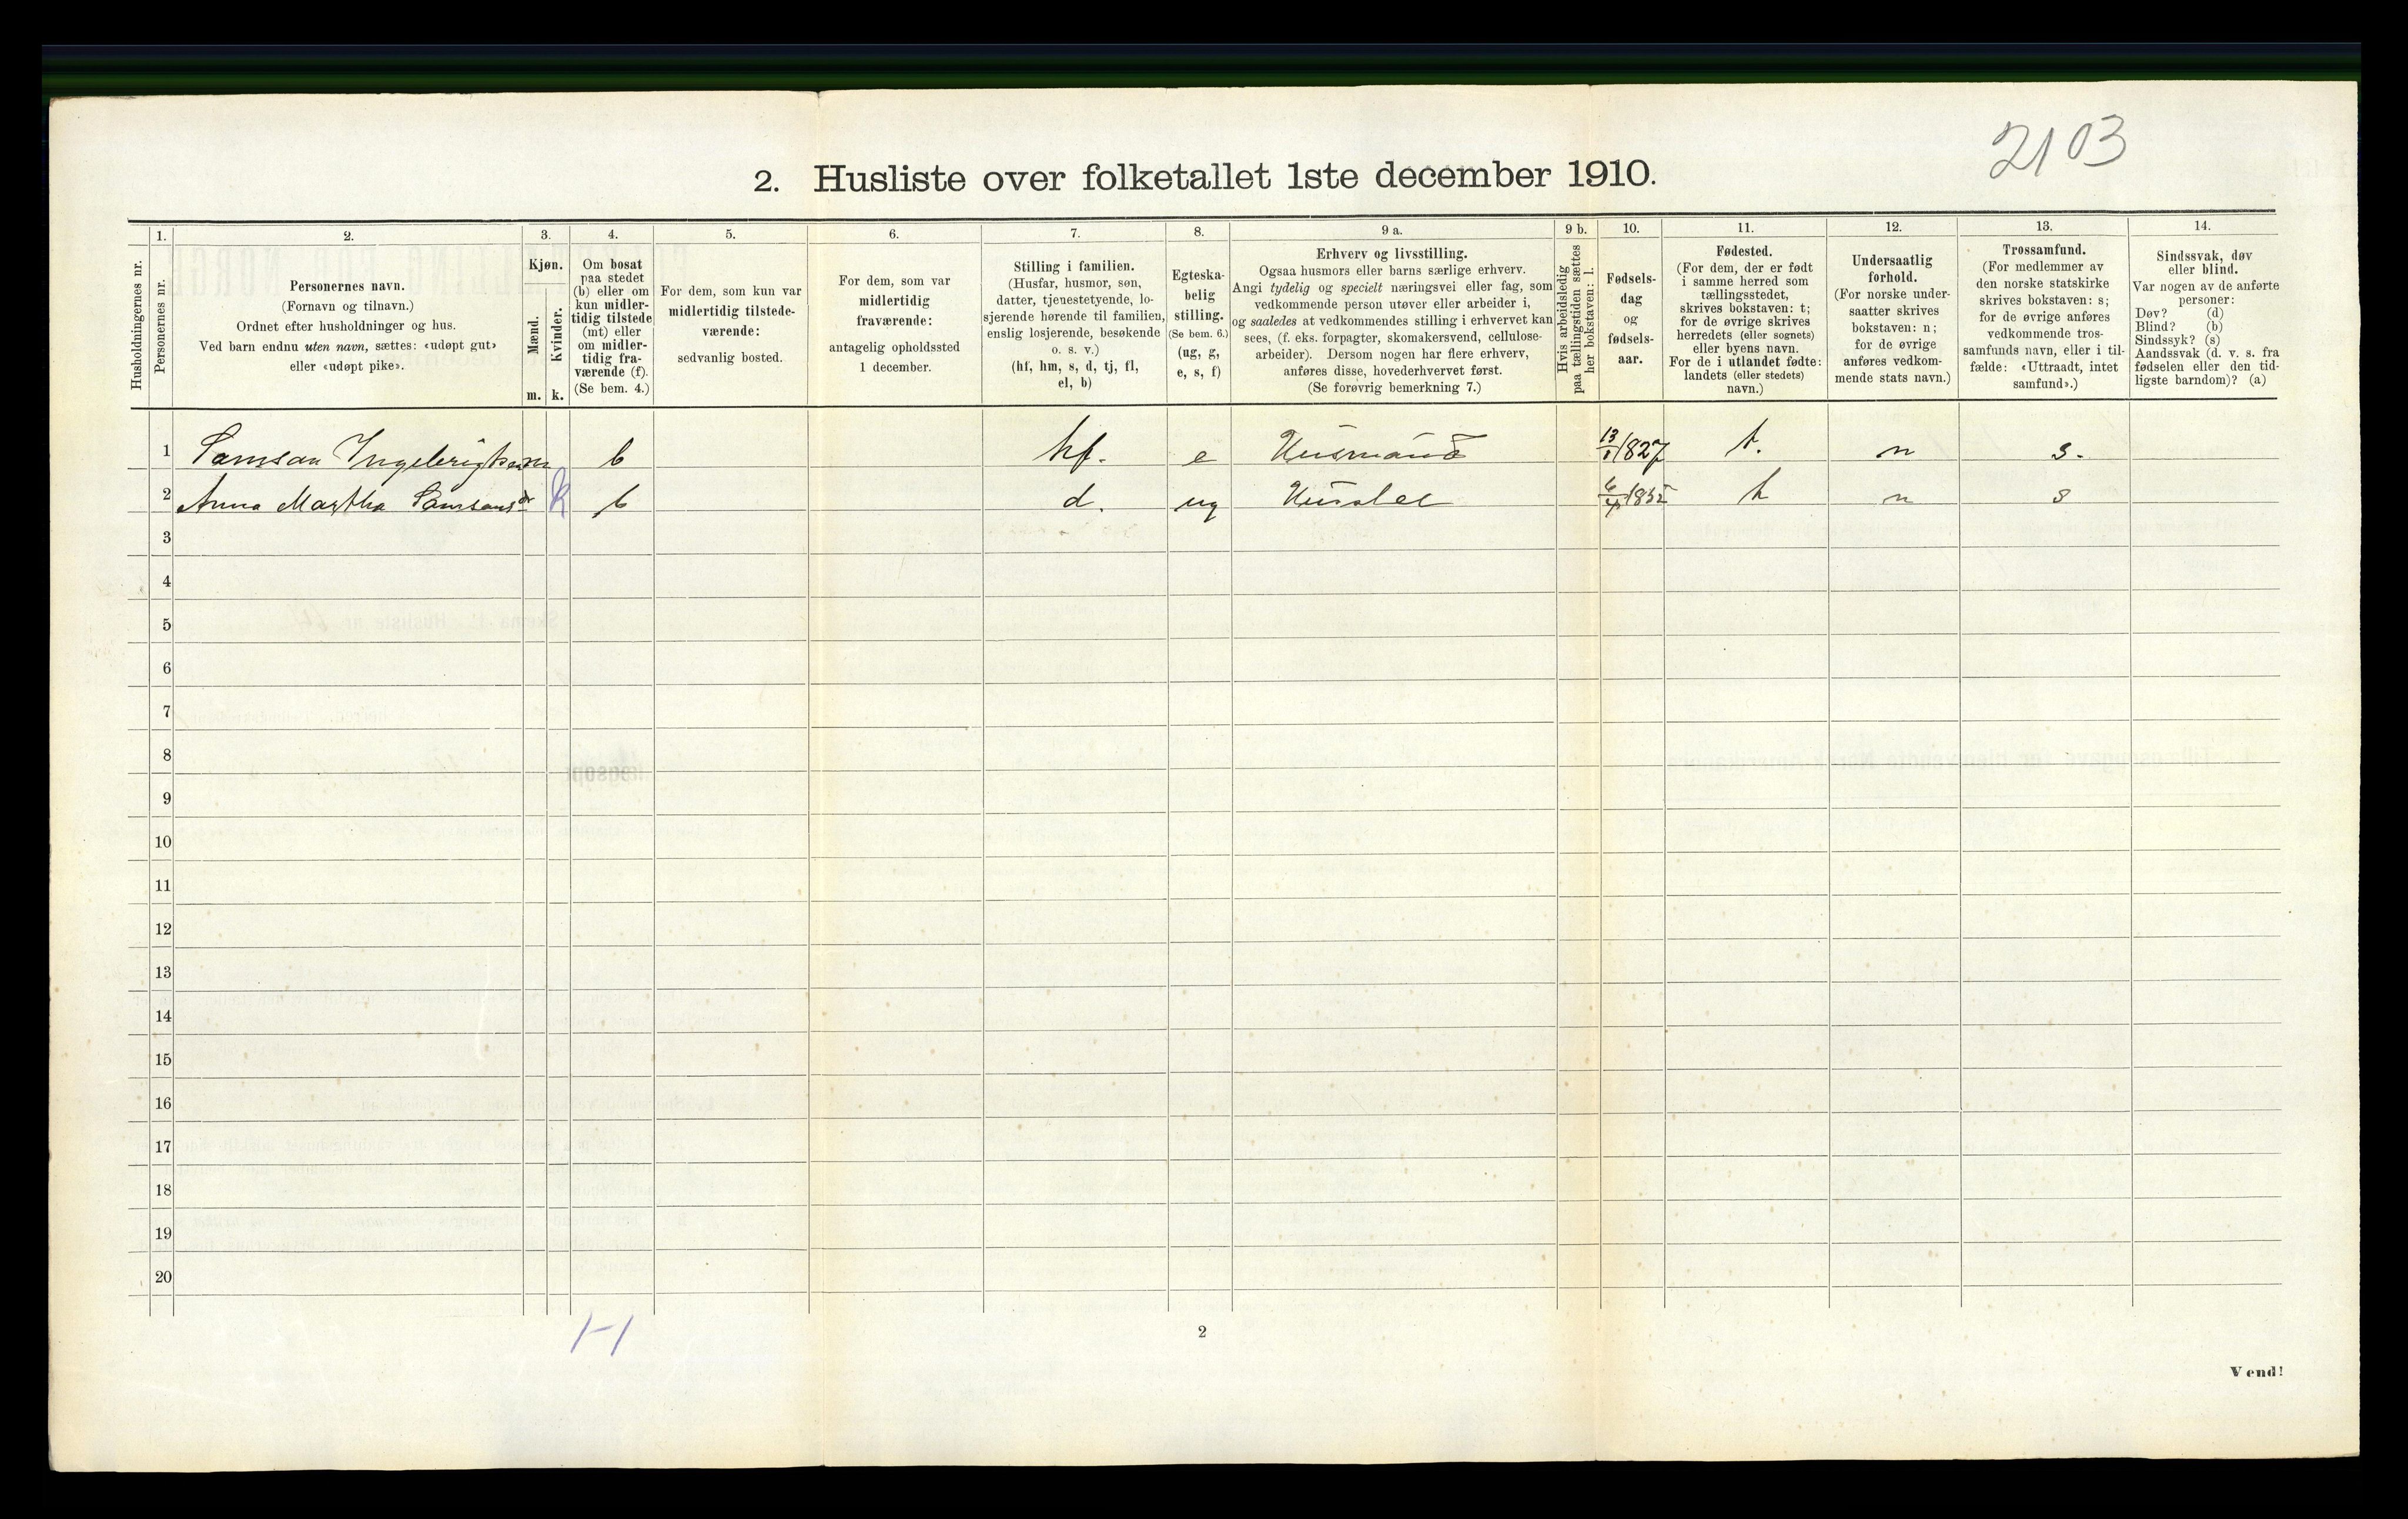 2103
2. Husliste over folketallet 1ste december 1910.
Husholdningernes nr.
1.
Personernes nr.
2.
Personernes navn.
(Fornavn og tilnavn.)
Ordnet efter husholdninger og hus.
Ved barn endnu uten navn, sættes: «udøpt gut»
eller «udøpt pike».
3.
Kjøn.
Mænd.
Kvinder.
m. k.
4.
Om bosat
paa stedet
(b) eller om
kun midler-
tidig tilstede
(mt) eller
om midler-
tidig fra-
værende (f).
(Se bem. 4.)
5.
For dem, som kun var
midlertidig tilstede-
værende:
sedvanlig bosted.
6.
For dem, som var
midlertidig
fraværende:
antagelig opholdssted
1 december.
7.
Stilling i familien.
(Husfar, husmor, søn,
datter, tjenestetyende, lo-
sjerende hørende til familien,
enslig losjerende, besøkende
o. s. v.)
(hf, hm, s, d, tj, fl,
el, b)
8.
Egteska-
belig
stilling.
(Se bem. 6.)
(ug, g,
e, s, f)
9 a.
Erhverv og livsstilling.
Ogsaa husmors eller barns særlige erhverv.
Angi tydelig og specielt næringsvei eller fag, som
vedkommende person utøver eller arbeider i,
og saaledes at vedkommendes stilling i erhvervet kan
sees, (f. eks. forpagter, skomakersvend, cellulose-
arbeider). Dersom nogen har flere erhverv,
anføres disse, hovederhvervet først.
(Se forøvrig bemerkning 7.)
9 b.
Hvis arbeidsledig
paa tællingstiden sættes
her bokstaven: l.
10.
Fødsels-
dag
og
fødsels-
aar.
11.
Fødested.
(For dem, der er født
i samme herred som
tællingsstedet,
skrives bokstaven: t;
for de øvrige skrives
herredets (eller sognets)
eller byens navn.
For de i utlandet fødte:
landets (eller stedets)
navn.)
12.
Undersaatlig
forhold.
(For norske under-
saatter skrives
bokstaven: n;
for de øvrige
anføres vedkom-
mende stats navn.)
13.
Trossamfund.
(For medlemmer av
den norske statskirke
skrives bokstaven: s;
for de øvrige anføres
vedkommende tros-
samfunds navn, eller i til-
fælde: «Uttraadt, intet
samfund».)
14.
Sindssvak, døv
eller blind.
Var nogen av de anførte
personer:
Døv? (d)
Blind? (b)
Sindssyk? (s)
Aandssvak (d. v. s. fra
fødselen eller den tid-
ligste barndom)? (a)
1 Samson Ingebrigtsen m b hf. e Husmand 13/1 1827 t. n s.
2 Anna Martha Samsonsdr k b d. ug Husstel t n s
3
4
5
6
7
8
9
10
11
12
13
14
15
16
17
18
19
20
1-1
2
Vend!